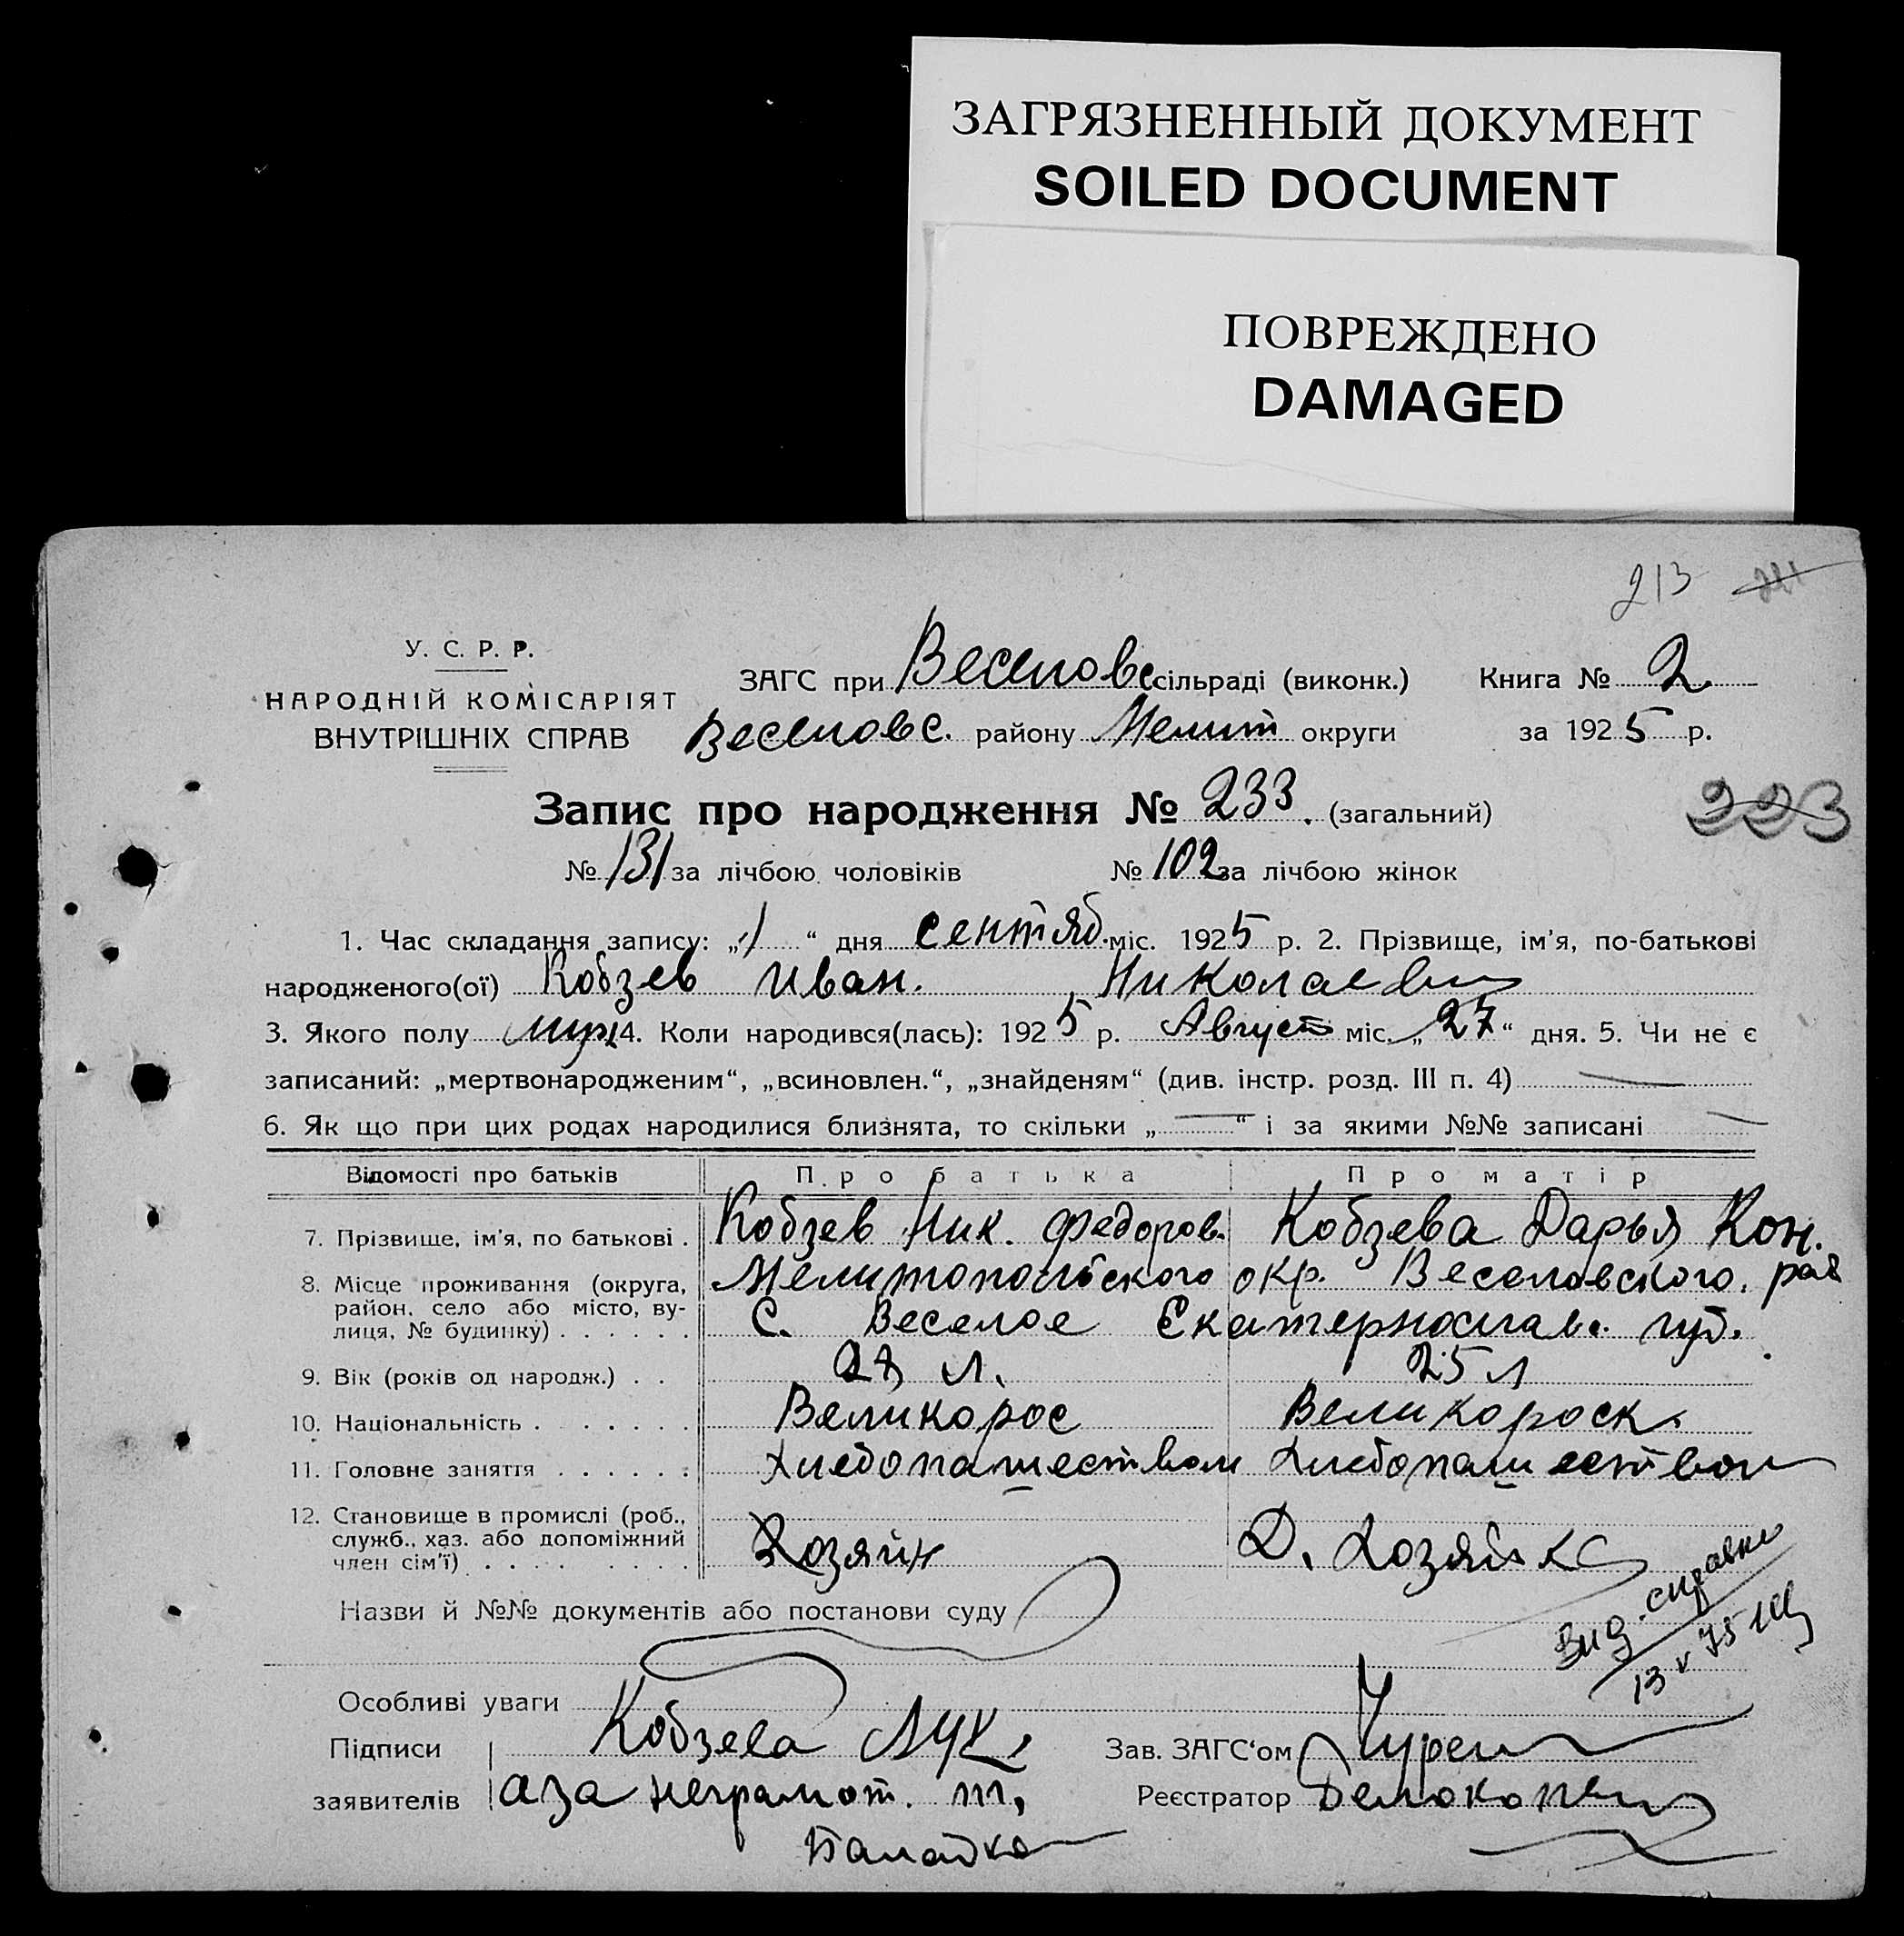 ЗАГРЯЗНЕННЫЙ ДОКУМЕНТ
SOILED DOCUMENT
ПОВРЕЖДЕНО
DAMAGED
213
У. С. Р. Р.
НАРОДНІЙ КОМІСАРІЯТ
ВНУТРІШНІХ СПРАВ
ЗАГС при Веселовс сільраді (виконк.) Книга № 2
Веселовс. району Мелит округи за 1925 р.
Запис про народження № 233. (загальний)
223
№ 131 за лічбою чоловіків № 102 за лічбою жінок
1. Час складання запису: „1“ дня сентяб. міс. 1925 р. 2. Прізвище, ім'я, по-батькові
народженого(ої) Кобзев Иван. Николаевич
3. Якого полу муж 4. Коли народився(лась): 1925 р. Август міс. „27“ дня. 5. Чи не є
записаний: „мертвонародженим“, „всиновлен.“, „знайденям“ (див. інстр. розд. III п. 4) —
6. Як що при цих родах народилися близнята, то скільки „—“ і за якими №№ записані —
Відомості про батьків Про батька Про матір
7. Прізвище, ім'я, по батькові . Кобзев Ник. Федоров. Кобзева Дарья Кон.
8. Місце проживання (округа, район, село або місто, вулиця, № будинку) . . . . . . Мелитопольского окр. Веселовского. рай
С. Веселое Екатеринослав. губ.
9. Вік (років од народж.) . . 28 л. 25 л
10. Національність . . . . . . . Великорос Великороск.
11. Головне заняття . . . . . . Хлебопашеством Хлебопашеством
12. Становище в промислі (роб., служб., хаз. або допоміжний член сім'ї) . . . . . . . . Хозяин Д. Хозяйка
Назви й №№ документів або постанови суду
Выд. справка
13 V 75
Особливі уваги
Підписи Кобзева Лук. Зав. ЗАГС‘ом
заявителів аза неграмот. Реєстратор